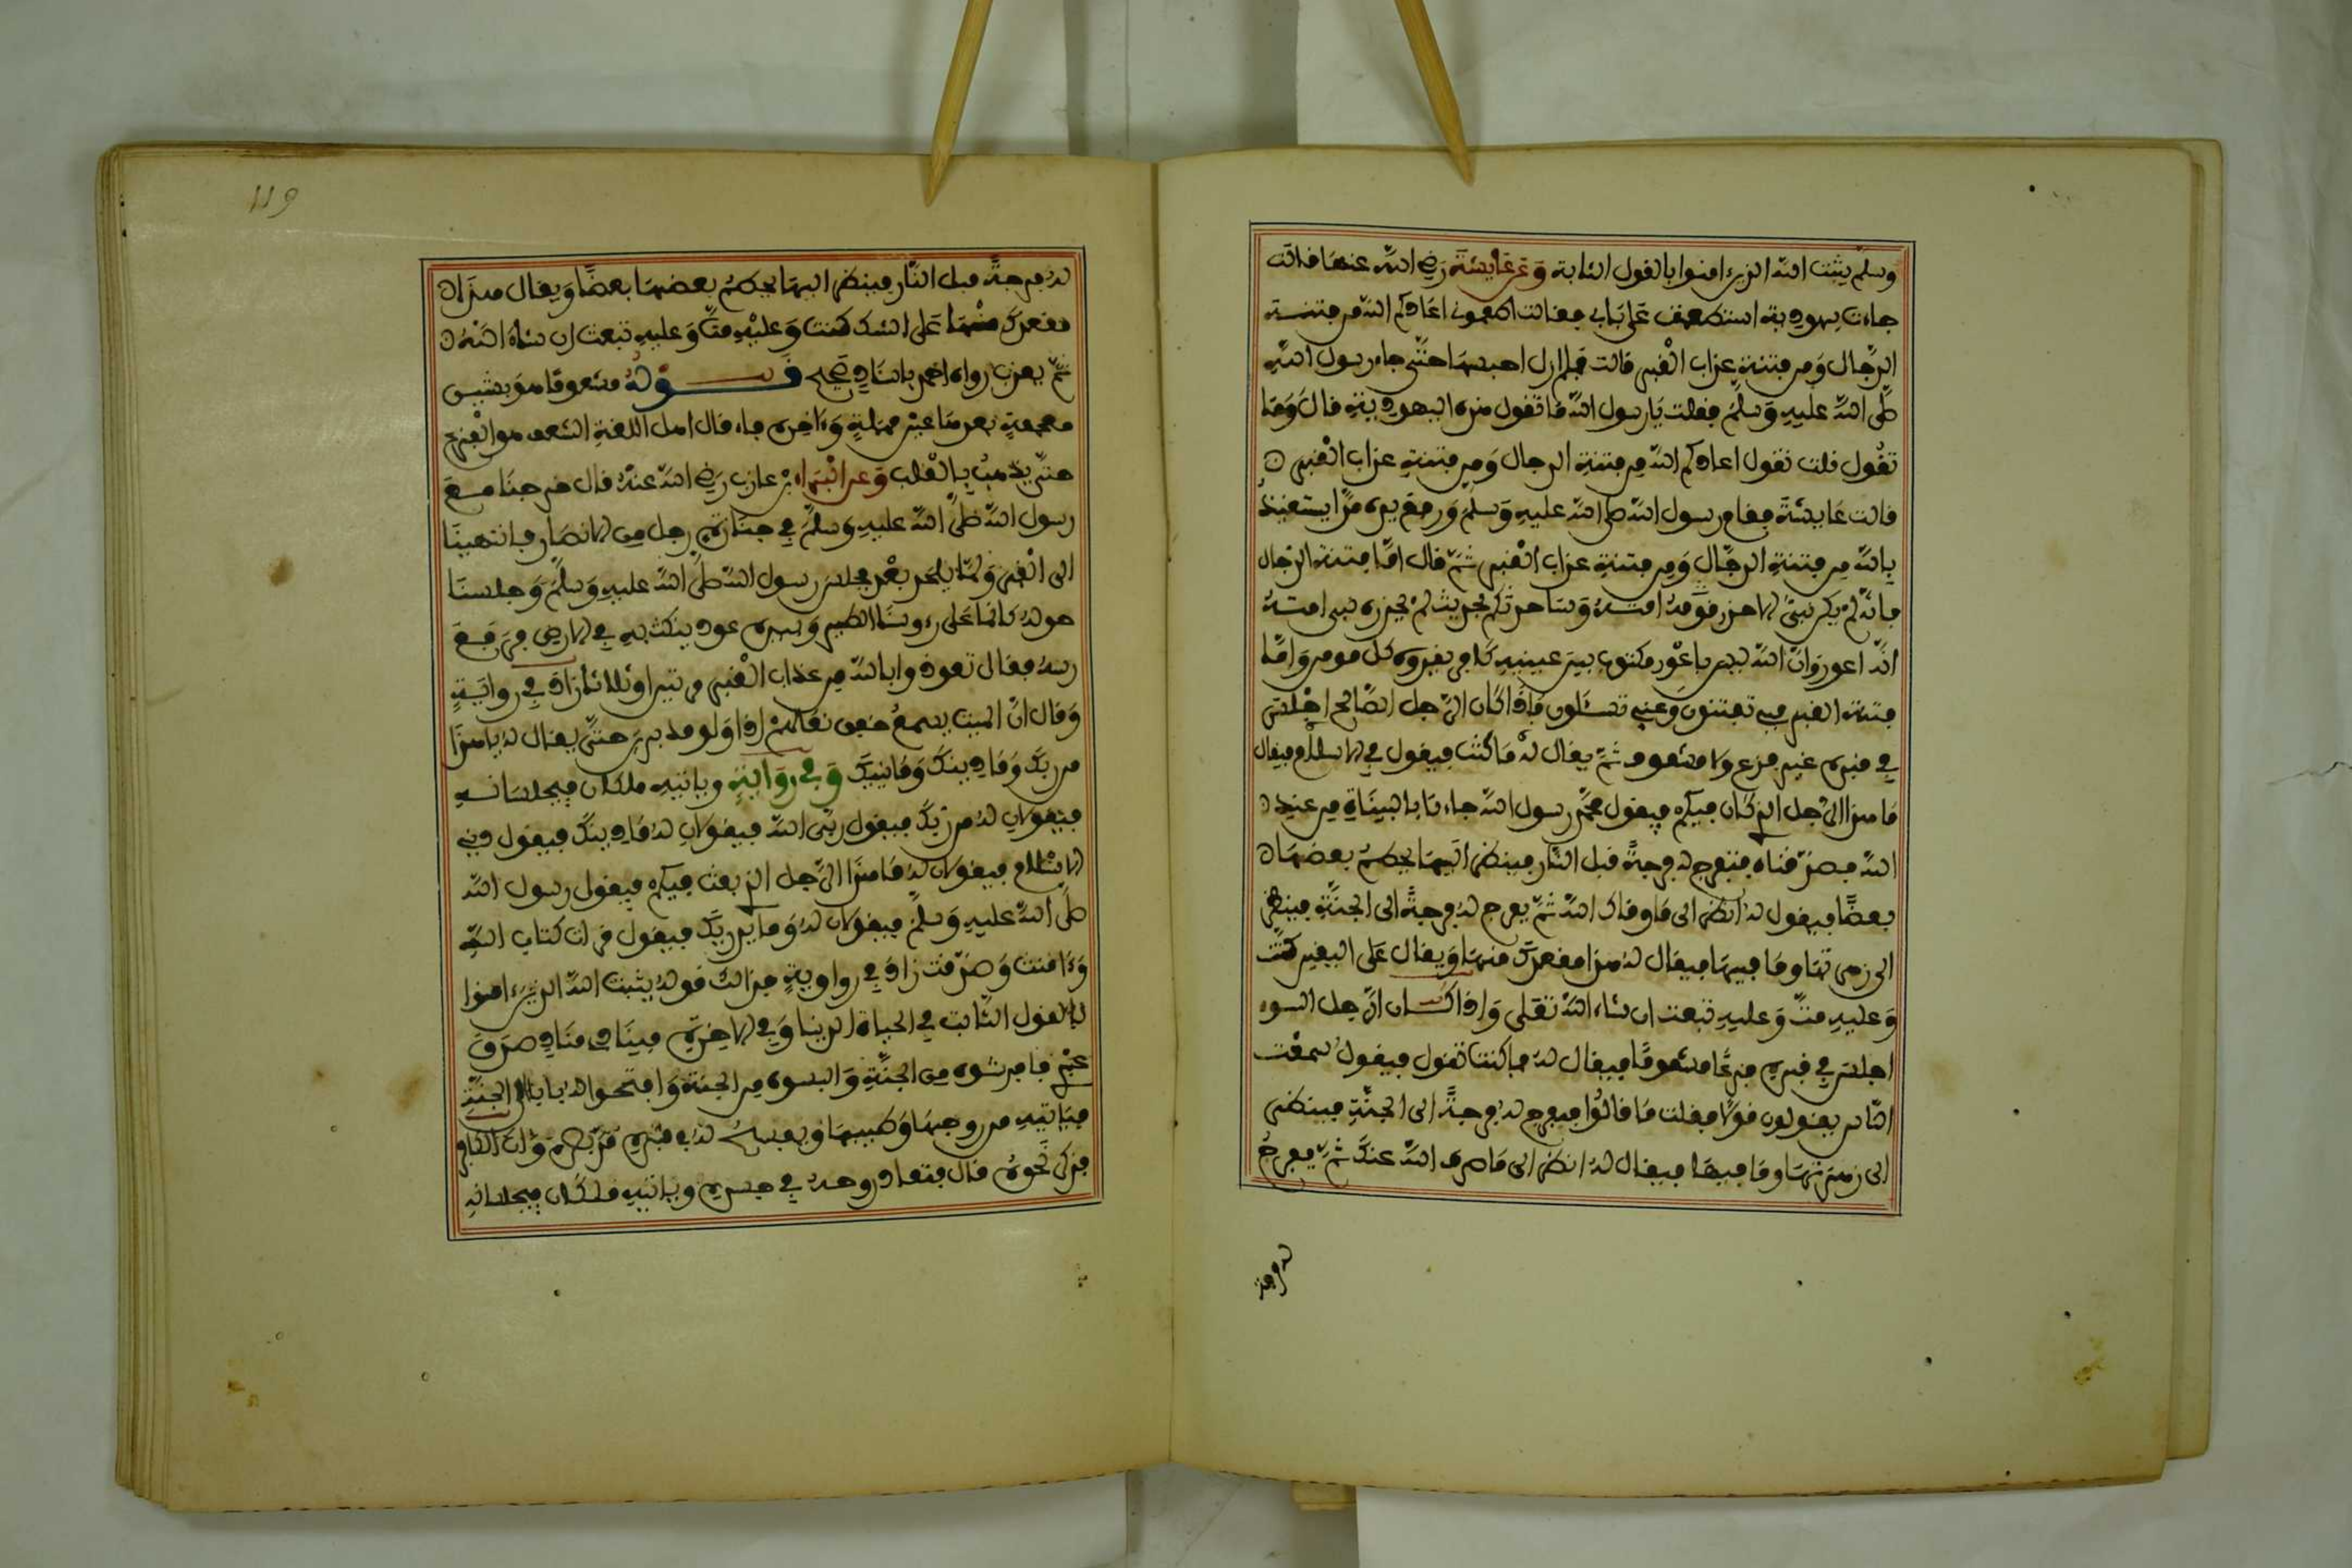 وسلم يثبت الله الذين ءامنوا بالقول الثابة وعن عايشة رضي الله عنها قالت
جاءت يهودية استطعمت على بابي فقالت اطعموني اعاذكم الله من فتنة
الدجال ومن فتنة عذاب القبر قالت فلم ازل احبسها حتى جاء رسول الله
صلى الله عليه وسلم فقلت يا رسول الله ما تقول هذه اليهودية قال وما
تقول قلت تقول اعاذكم الله من فتنة الدجال ومن فتنة عذاب القبر
قالت عايشة فقام رسول الله صلى الله عليه وسلم ورفع يده مدا يستعيذ
بالله من فتنة الدجال ومن فتنة عذاب القبر ثم قال اما فتنة الدجال
فانه لم يكن نبي الا حذر قومه امته وساحدثكم بحديث لم يحذره نبي امته
انه اعور وان الله ليس باعور مكتوب بين عينيه كافر يقروه كل مومن واما
فتنة القبر فبي تفتنون وعني تسئلون فاذا كان الرجل الصالح اجلس
في قبره غير فزع ولا مشعوف ثم يقال له ما كنت فيقول في الاسلام فيقال
ما هذا الرجل الذي كان فيكم فيقول محمد رسول الله جاءنا بالبينات من عند
الله فصدقناه فتفرج له فرجة قبل النار فينظر اليها يحطم بعضها
بعضا فيقول له انظر الى ما وقاك الله ثم يفرج له فرجة الى الجنة فينظر
الى زهرتها وما فيها فيقال له هذا مقعدك منها ويقال على اليقين كنت
وعليه مت وعليه تبعث ان شاء الله تعلى واذا كان الرجل السوء
اجلس في قبره فزعا مشعوفا فيقال له فما كنت تقول فيقول سمعت
الناس يقولون قولا فقلت ما قالوا فيفرج له فرجة الى الجنة فينظر
الى زهرتها وما فيها فيقال له انظر الى ما صرف الله عنك ثم يفرج
له فرجة
119
له فرجة قبل النار فينظر اليها يحطم بعضها بعضا ويقال هذا
مقعدك منها على الشك كنت وعليه مت وعليه تبعث ان شاء الله
ثم يعذب رواه احمد باسناد صحيح قوله مشعوفا هو بشين
معجمة بعدها عين مهملة وءاخره فاء قال اهل اللغة الشعف هو الفزع
حتى يذهب بالقلب وعن البراء بن عازب رضي الله عنه قال خرجنا مع
رسول الله صلى الله عليه وسلم في جنازة رجل من الانصار فانتهينا
الى القبر ولما يلحد بعد فجلس رسول الله صلى الله عليه وسلم وجلسنا
حوله كانما على رءوسنا الطير وبيده عود ينكت به في الارض فرفع
رسه فقال تعوذوا بالله من عذاب القبر مرتين او ثلاثا زاد في رواية
وقال ان الميت يسمع خفق نعالهم اذا ولو مدبرين حتى يقال له يا هذا
من ربك وما دينك وما نبيك وفي رواية وياتيه ملكان فيجلسانه
فيقولان له من ربك فيقول ربي الله فيقولان له ما دينك فيقول ديني
الاسلام فيقولان له ما هذا الرجل الذي بعث فيكم فيقول رسول الله
صلى الله عليه وسلم فيقولان له وما يدريك فيقول قرات كتاب الله
وءامنت وصدقت زاد في رواوية فذالك قوله يثبت الله الذين ءامنوا
بالقول الثابت في الحياة الدنيا وفي الاخرة فينادي مناد صدق
عبدي فافرشوه من الجنة والبسوه من الجنة وافتحوا له بابا الى الجنة
فياتيه من روحها وطيبها ويفسح له في قبره مد بصره وان الكافر
فذكر نحوه قال فتعاد روحه في جسده وياتيه ملكان فيجلسانه